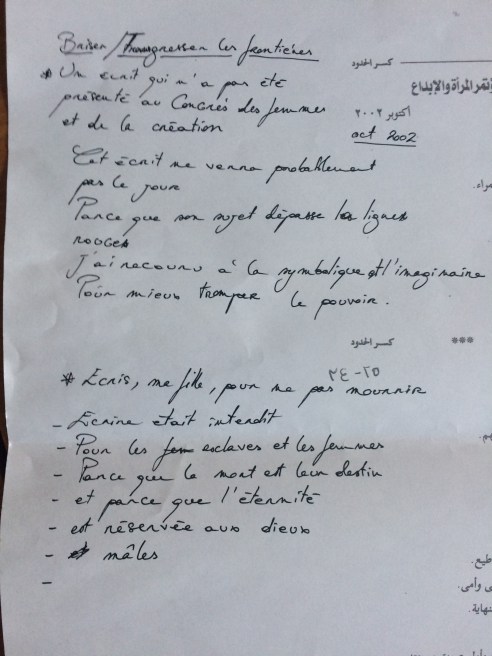 Briser / Transgresser les frontières
كسر الحدود
* Un écrit qui n'a pas été
présenté au Congrès des femmes
et de la création
ؤتمر المرأة والإبداع
أكتوبر ٢٠٠٢
oct 2002
Cet écrit ne verra probablement
pas le jour
مراء.
Parce que son sujet dépasse les lignes
rouges
J'ai recouru à la symbolique et l'imaginaire
Pour mieux tromper le pouvoir.
كسر الحدود
***
٢٤-٢٥
* Ecris, ma fille, pour ne pas mourrir
- Ecrire était interdit
- Pour les fem esclaves et les femmes
- Parce que la mort est leur destin
- et parce que l'éternité
- est réservée aux dieux
- et mâles
-
طيع.
ى وأمى.
نهاية.